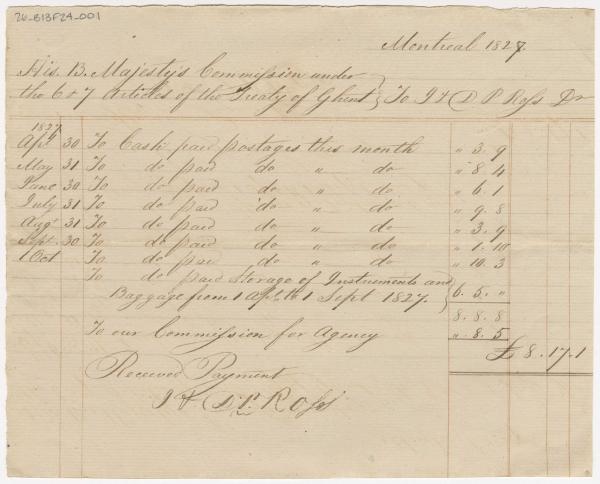 26-B13F24-001
Montreal 1827.
His B. Majesty's Commission under
the 6 & 7 Articles of the Treaty of Ghent } To J & D P Ross Dr
1827
Apl. 30 To Cash paid postages this month " 3. 9
May 31 To do paid do " do " 8 4
June 30 To do paid do " do " 6. 1
July 31 To do paid do " do " 9. 8
Augt 31 To do paid do " do " 3. 9
Sept. 30 To do paid do " do " 1. 10
1 Oct To do paid do " do " 10. 3
To do paid Storage of Instruments and
Baggage from 1 Apl. to 1 Sept 1827. } 6. 5. "
8. 8. 8
To our Commission for Agency " 8. 5
£8. 17. 1
Received Payment
J & D P. Ross